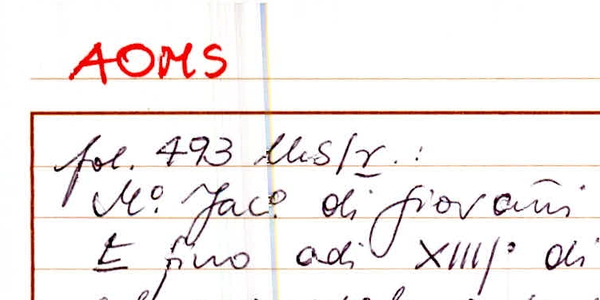 AOMS
fol. 493 lks/r.:
M° Jac° di giovañi
E fino adi XIIII° di